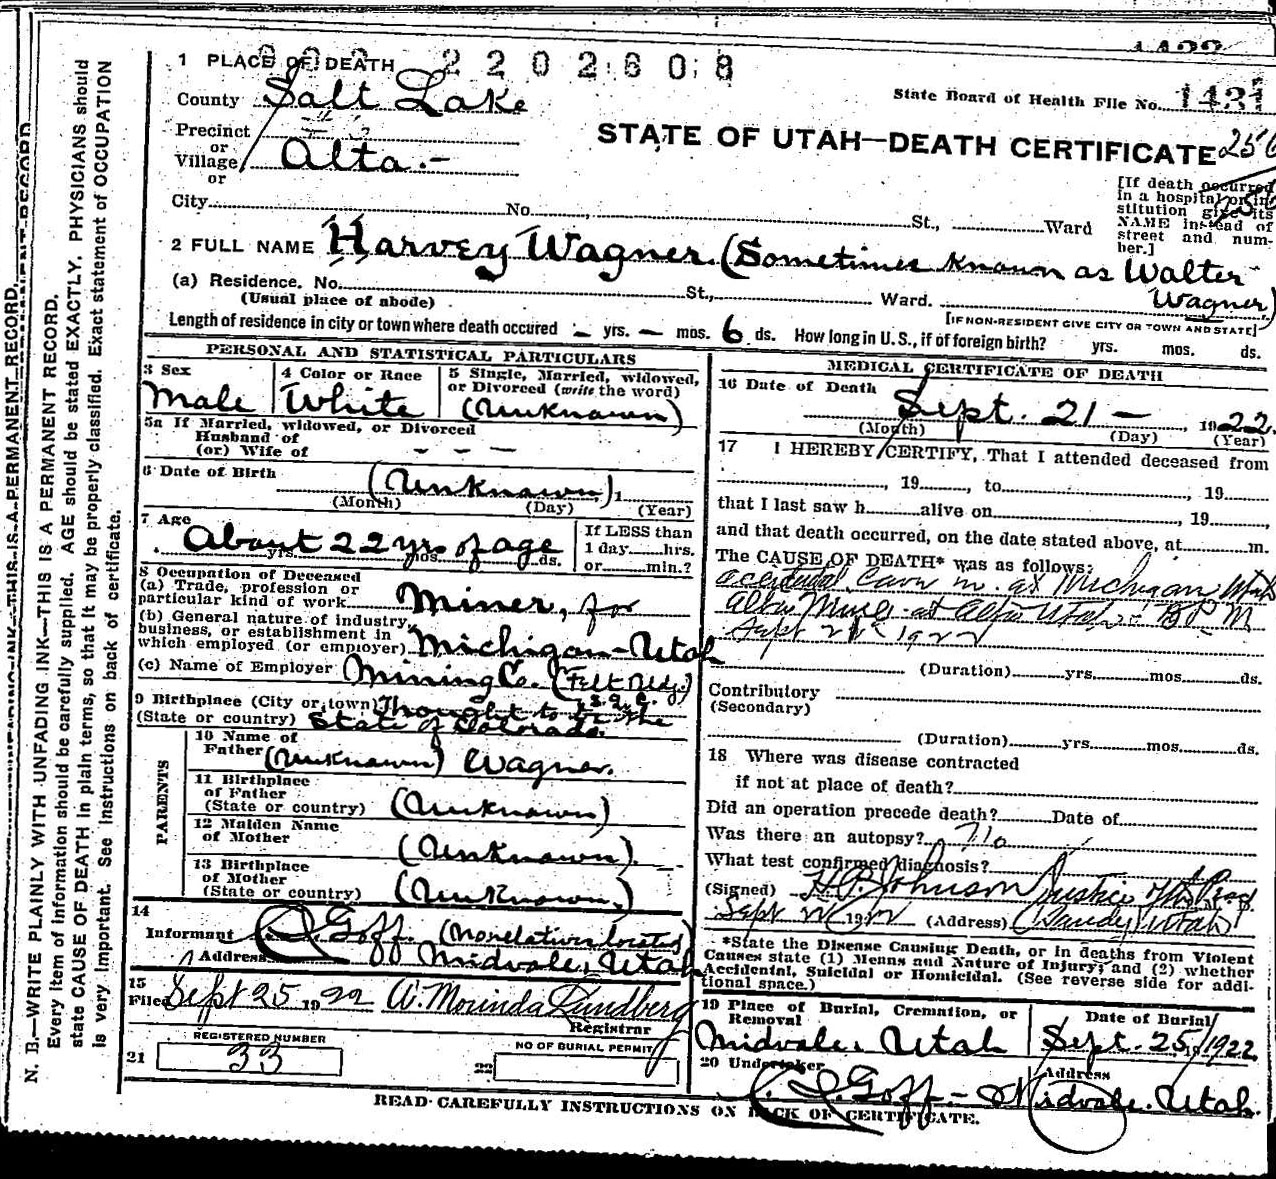 1 PLACE OF DEATH 2202608
County Salt Lake
State Board of Health File No. 1421
Precinct
or
Village Alta.-
or
STATE OF UTAH—DEATH CERTIFICATE 256
City No. St., Ward
[If death occurred in a hospital or institution give its NAME instead of street and number.]
2 FULL NAME Harvey Wagner. (Sometimes known as Walter Wagner)
(a) Residence. No. St., Ward.
(Usual place of abode) [IF NON-RESIDENT GIVE CITY OR TOWN AND STATE]
Length of residence in city or town where death occured – yrs. – mos. 6 ds. How long in U.S., if of foreign birth? yrs. mos. ds.
PERSONAL AND STATISTICAL PARTICULARS
3 Sex
Male
4 Color or Race
White
5 Single, Married, widowed,
or Divorced (write the word)
(Unknown)
5a If Married, widowed, or Divorced
Husband of
(or) Wife of - - -
6 Date of Birth
(Unknown) 1
(Month) (Day) (Year)
7 Age
About 22 yrs of age
yrs. mos. ds.
If LESS than
1 day hrs.
or min.?
8 Occupation of Deceased
(a) Trade, profession or
particular kind of work Miner, for
(b) General nature of industry,
business, or establishment in
which employed (or employer) Michigan-Utah
(c) Name of Employer Mining Co. (Felt Bldg.)
9 Birthplace (City or town) Thought to be the
(State or country) State of Colorado.
PARENTS
10 Name of
Father (Unknown) Wagner.
11 Birthplace
of Father
(State or country) (Unknown)
12 Maiden Name
of Mother (Unknown).
13 Birthplace
of Mother
(State or country) (Unknown.)
14
Informant Goff. (No relatives located)
Address Midvale, Utah
15
Filed Sept 25 1922 A. Morinda Lundberg
Registrar
REGISTERED NUMBER
21 33
NO OF BURIAL PERMIT
22
MEDICAL CERTIFICATE OF DEATH
16 Date of Death
Sept. 21 — , 1922.
(Month) (Day) (Year)
17 I HEREBY CERTIFY, That I attended deceased from
, 19 , to , 19
that I last saw h alive on , 19 ,
and that death occurred, on the date stated above, at m.
The CAUSE OF DEATH* was as follows:
accidental Cave in at Michigan Utah
Alta Mines at Alta Utah P M
Sept 21 1922
(Duration) yrs. mos. ds.
Contributory
(Secondary)
(Duration) yrs. mos. ds.
18 Where was disease contracted
if not at place of death?
Did an operation precede death? Date of
Was there an autopsy? No
What test confirmed diagnosis?
(Signed) H. P. Johnson Justice of the Peace
Sept 1922 (Address) Sandy Utah
*State the Disease Causing Death, or in deaths from Violent
Causes state (1) Means and Nature of Injury; and (2) whether
Accidental, Suicidal or Homicidal. (See reverse side for addi-
tional space.)
19 Place of Burial, Cremation, or
Removal
Midvale, Utah
Date of Burial
Sept. 25, 1922
20 Undertaker
Goff.-
Address
Midvale. Utah.
READ CAREFULLY INSTRUCTIONS ON BACK OF CERTIFICATE.
N. B.—WRITE PLAINLY WITH UNFADING INK—THIS IS A PERMANENT RECORD.
Every item of information should be carefully supplied. AGE should be stated EXACTLY. PHYSICIANS should
state CAUSE OF DEATH in plain terms, so that it may be properly classified. Exact statement of OCCUPATION
is very important. See instructions on back of certificate.